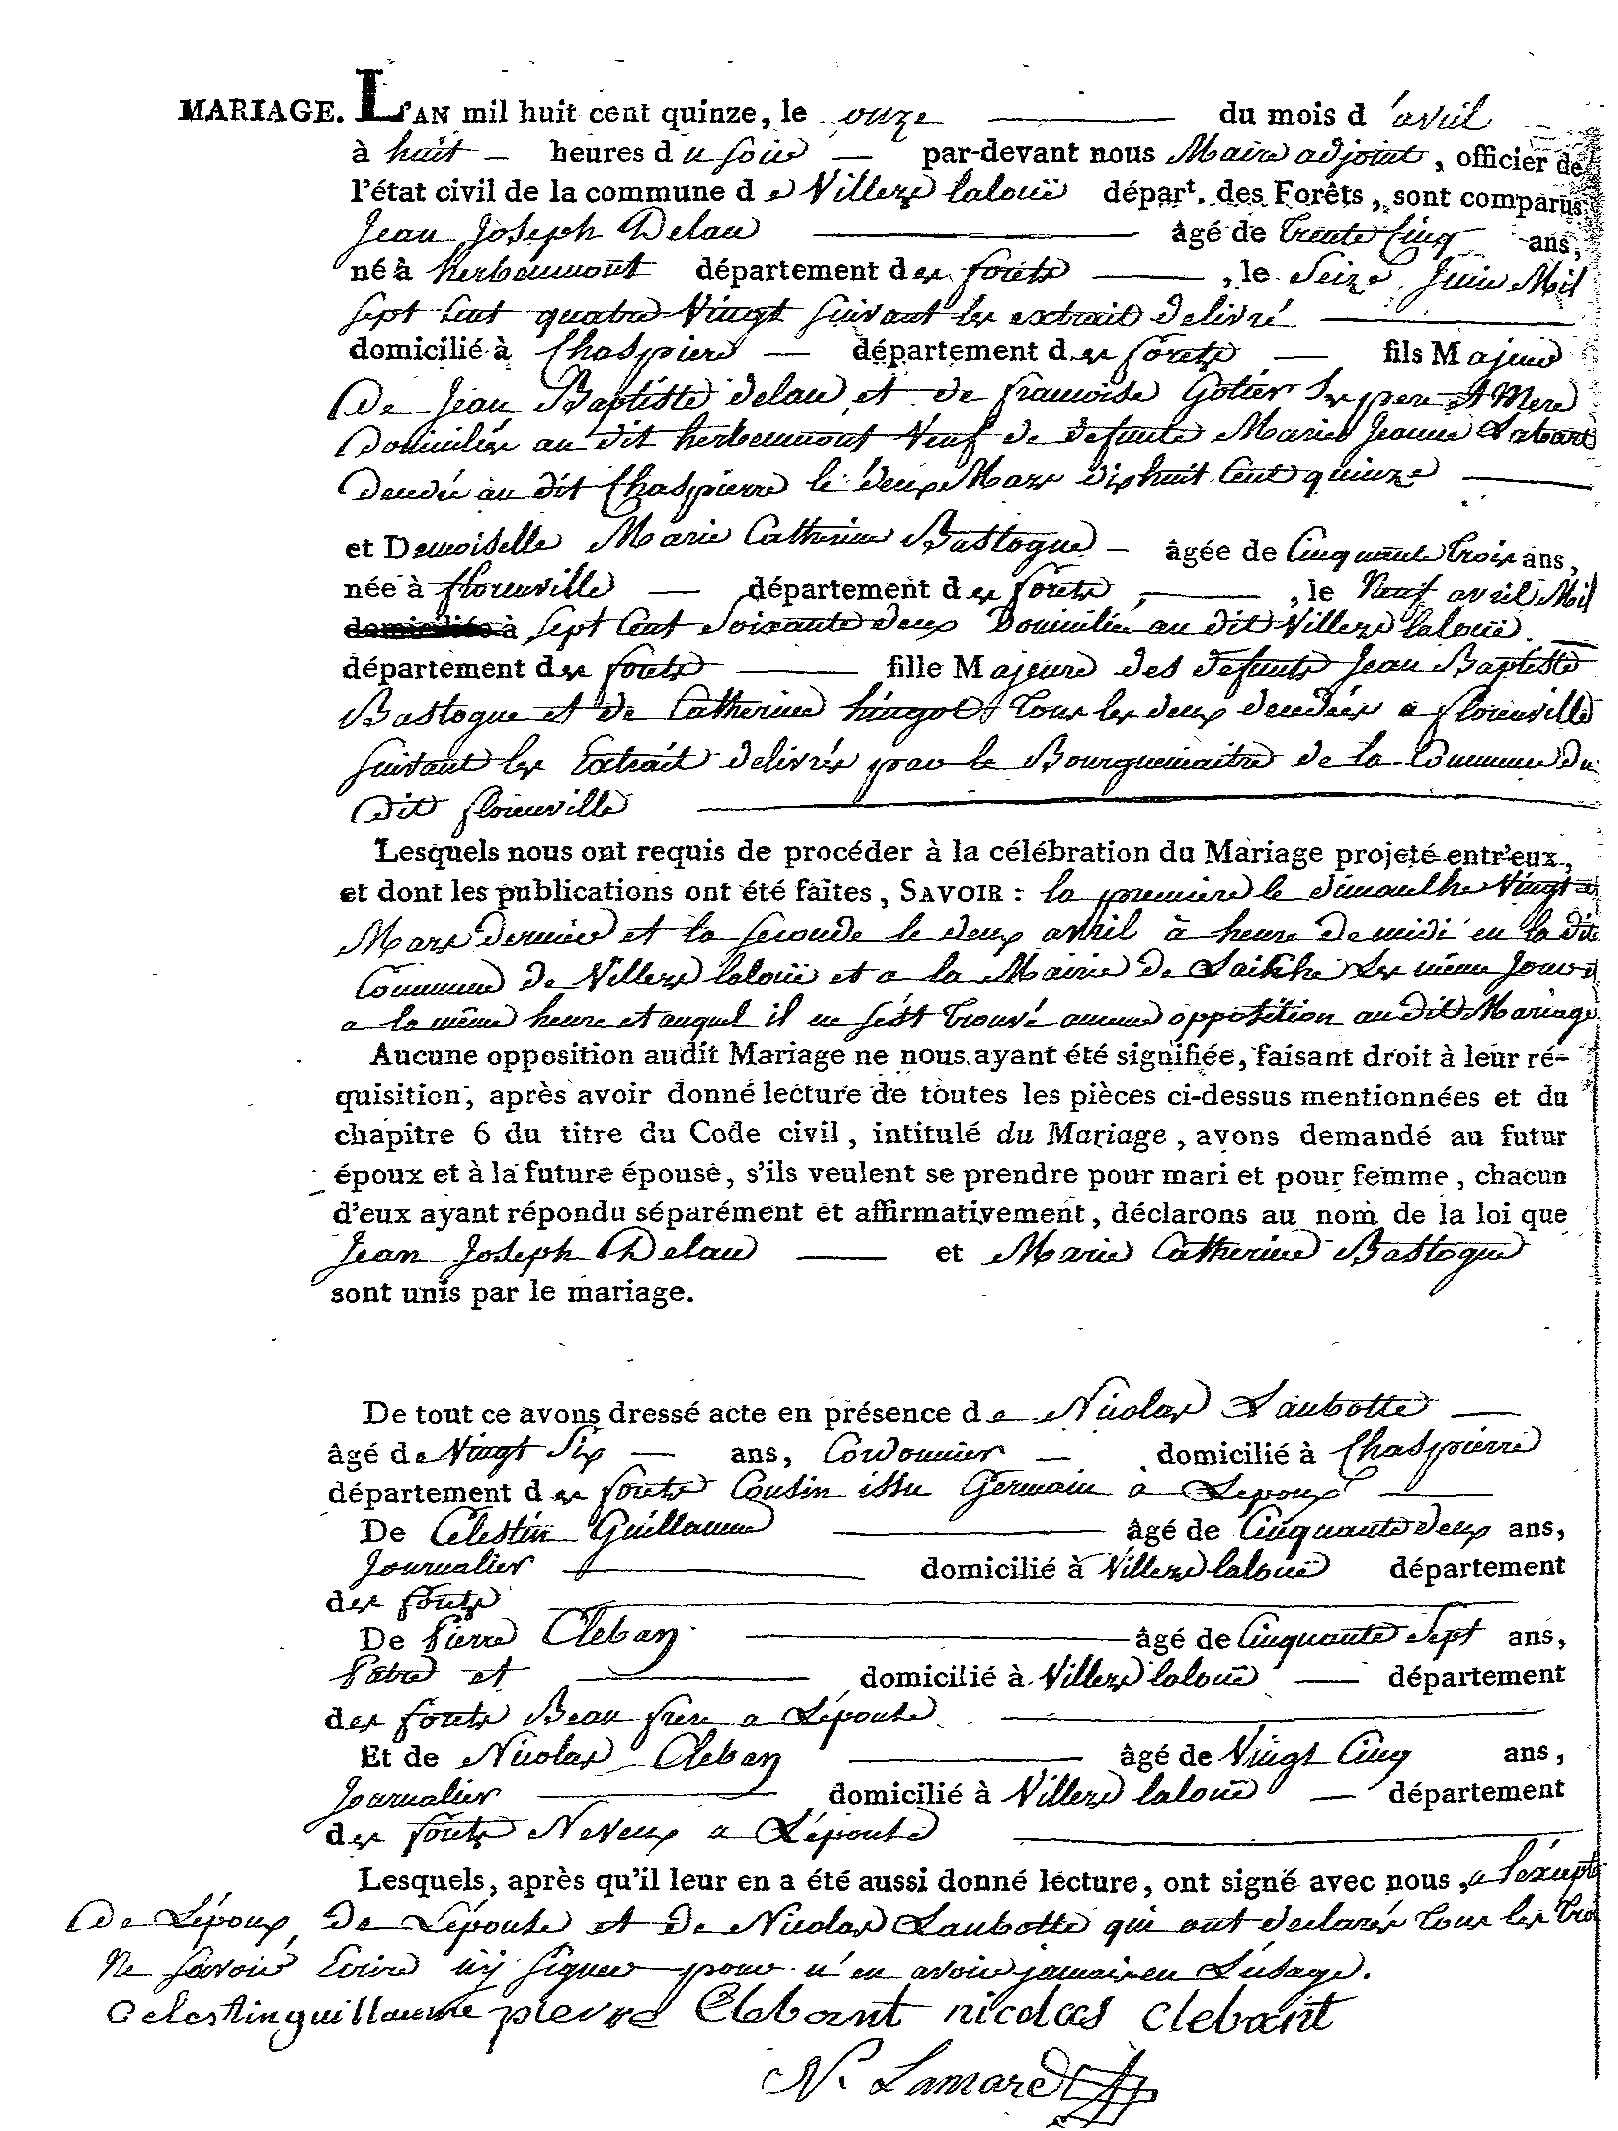 MARIAGE. L'AN mil huit cent quinze, le onze du mois d'avril
à huit heures du soir par-devant nous Maire adjoint, officier de
l'état civil de la commune de Villers laloüe départ. des Forêts, sont comparus
Jean Joseph Delau âgé de trente Cinq ans,
né à herbeumont département des forêts, le Seize Juin Mil
sept Cent quatre Vingt suivant les extrait delivré
domicilié à Chaspierre département des forets fils Majeur
De Jean Baptiste delau et de francoise Gotier Ses pere et Mere
Domiciliés au dit herbeumont Veuf de defunte Marie Jeanne
decedée au dit Chaspierre le deux Mars dix huit Cent quinze
et Demoiselle Marie Catherine Bastogne âgée de Cinquante trois ans,
née à florenville département des forêts, le Neuf avril Mil
domiciliée à sept Cent Soixante deux Domiciliée au dit Villers laloüe.
département des forêts fille Majeure des defunts Jean Baptiste
Bastogne et de Catherine hingot tous les deux decedées a florenville
suivant les Extrait delivrés par le Bourguemaitre de la Commune du
dit florenville
Lesquels nous ont requis de procéder à la célébration du Mariage projeté entr'eux,
et dont les publications ont été faites, SAVOIR : la premiere le dimanche Vingt
Mars dernier et la seconde le deux avril à heure de midi en la dite
Commune de Villers laloüe et a la Mairie de Laiche Les même Jours
a la même heure et auquel il ne s'est trouvé aucune opposition au dit Mariage
Aucune opposition audit Mariage ne nous ayant été signifiée, faisant droit à leur ré-
quisition, après avoir donné lecture de toutes les pièces ci-dessus mentionnées et du
chapitre 6 du titre du Code civil, intitulé du Mariage, avons demandé au futur
époux et à la future épouse, s'ils veulent se prendre pour mari et pour femme, chacun
d'eux ayant répondu séparément et affirmativement, déclarons au nom de la loi que
Jean Joseph Delau et Marie Catherine Bastogne
sont unis par le mariage.
De tout ce avons dressé acte en présence de Nicolas Laubotte
âgé de Vingt Six ans, Cordonnier domicilié à Chaspierre
département des forêts Cousin issu Germain à Lepoux
De Celestin Guillaume âgé de Cinquante deux ans,
Journalier domicilié à Villers laloüe département
des forêts
De Pierre Cleban âgé de Cinquante Sept ans,
Patre et domicilié à Villers laloüe département
des forêts Beau frere a Lépouse
Et de Nicolas Cleban âgé de Vingt Cinq ans,
Journalier domicilié à Villers laloüe département
des forêts Neveux a L'épouse
Lesquels, après qu'il leur en a été aussi donné lecture, ont signé avec nous, a l'exept
De Lépoux De Lépouse et De Nicolas Laubotte qui ont declarés tous les troi
Ne savoir Ecrire ny signer pour n'en avoir jamais eu L'usage.
Celestin guillaume pierre Clebant nicolas clebant
N. Lamard